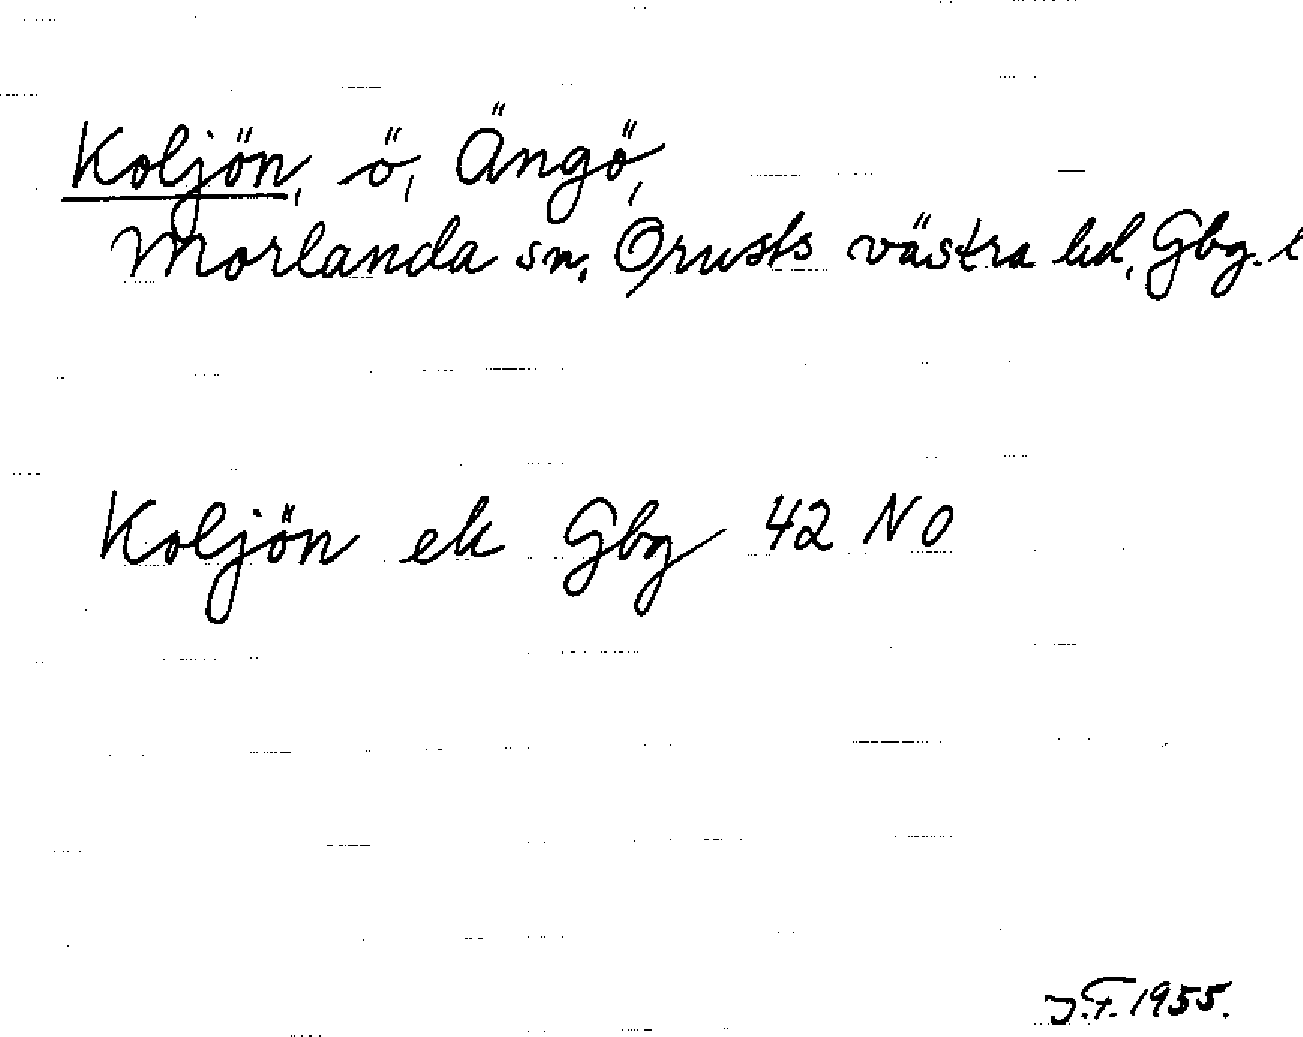 Koljön, ö, Ängö,
Morlanda sn, Orusts västra hd, Gbg. l
Koljön ek Gbg 42 NO
J.F. 1955.